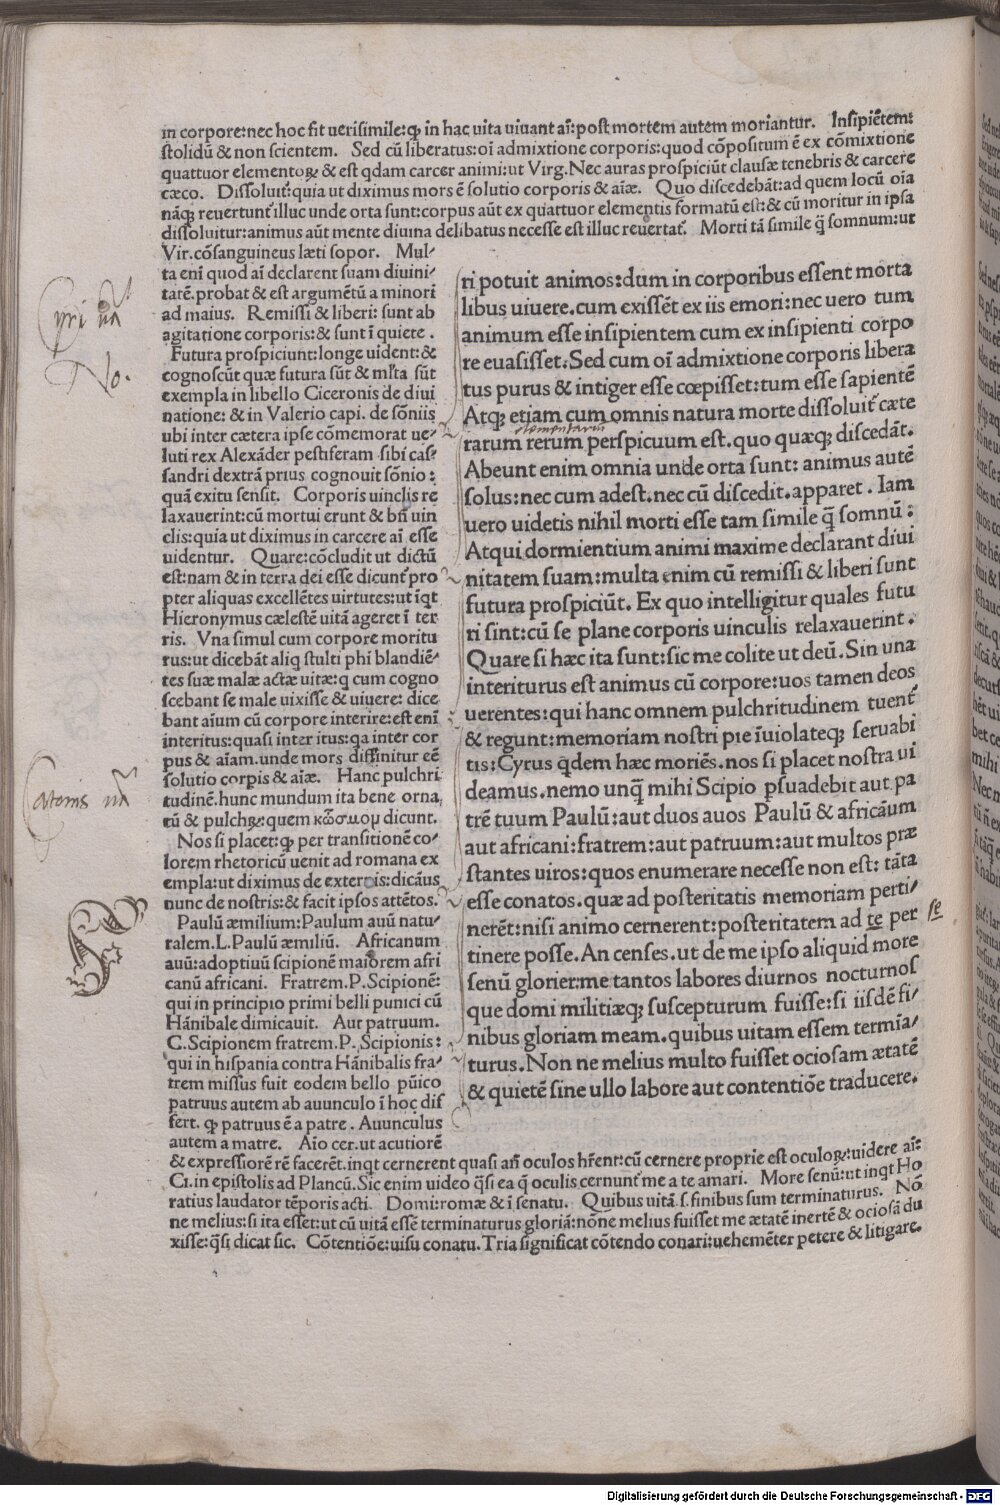 in corpore:nec hoc fit uerisimile:ꝙ in hac uita uiuant aī:post mortem autem moriantur. Insipiētem:
stolidū & non scientem. Sed cū liberatus:oī admixtione corporis:quod cōpositum ē ex cōmixtione
quattuor elementoꝝ & est qdam carcer animi:ut Virg. Nec auras prospiciūt clausæ tenebris & carcere
cæco. Dissoluit:quia ut diximus mors ē solutio corporis & aīæ. Quo discedebāt:ad quem locū oīa
nāqꝫ reuertunt illuc unde orta sunt:corpus aūt ex quattuor elementis formatū est:& cū moritur in ipsa
dissoluitur:animus aūt mente diuina delibatus necesse est illuc reuertat. Morti tā simile q̄ somnum:ut
Vir.cōsanguineus læti sopor. Mul/
ta enī quod aī declarent suam diuini/
tatē.probat & est argumētū a minori
ad maius. Remissi & liberi: sunt ab
agitatione corporis:& sunt ī quiete .
Futura prospiciunt:longe uident:&
cognoscūt quæ futura sūt & mlta sūt
exempla in libello Ciceronis de diui
natione: & in Valerio capi. de sōniis
ubi inter cætera ipse cōmemorat ue/
luti rex Alexāder pestiferam sibi cas
sandri dextrā prius cognouit sōnio:
quā exitu sensit. Corporis uinclis re
laxauerint:cū mortui erunt & bn̄ uin
clis:quia ut diximus in carcere aī esse
uidentur. Quare:cōcludit ut dictū
est:nam & in terra dei esse dicunt pro
pter aliquas excellētes uirtutes:ut īqt
Hieronymus cælestē uitā ageret ī ter
ris. Vna simul cum corpore moritu
rus:ut dicebāt aliq stulti phi blandiē/
tes suæ malæ actæ uitæ:q cum cogno
scebant se male uixisse & uiuere: dice
bant aīum cū corpore interire:est enī
interitus:quasi inter itus:qa inter cor
pus & aīam.unde mors diffinitur eē
solutio corpis & aīæ. Hanc pulchri
tudinē.hunc mundum ita bene orna
tū & pulchꝝ:quem κώσμομ dicunt.
Nos si placet:ꝙ per transitionē co/
lorem rhetoricū uenit ad romana ex
empla:ut diximus de externis:dicāus
nunc de nostris:& facit ipsos attētos.
Paulū æmilium:Paulum auū natu/
ralem.L.Paulū æmiliū. Africanum
auū:adoptiuū scipionē maiorem afri
canū africani. Fratrem.P.Scipionē:
qui in principio primi belli punici cū
Hānibale dimicauit. Aut patruum.
C.Scipionem fratrem.P.Scipionis:
qui in hispania contra Hānibalis fra/
trem missus fuit eodem bello pūico
patruus autem ab auunculo ī hoc dif
fert. ꝙ patruus ē a patre . Auunculus
autem a matre. Aīo cer.ut acutiorē
ri potuit animos:dum in corporibus essent morta
libus uiuere.cum exissēt ex iis emori:nec uero tum
animum esse insipientem cum ex insipienti corpo
re euasisset:Sed cum oī admixtione corporis libera
tus purus & intiger esse cœpisset:tum esse sapientē
Atqꝫ etiam cum omnis natura morte dissoluit cæte
elementarum
rarum rerum perspicuum est.quo quæqꝫ discedāt.
Abeunt enim omnia unde orta sunt: animus autē
solus:nec cum adest.nec cū discedit.apparet . Iam
uero uidetis nihil morti esse tam simile q̄ somnū:
Atqui dormientium animi maxime declarant diui
nitatem suam:multa enim cū remissi & liberi sunt
futura prospiciūt. Ex quo intelligitur quales futu
ri sint:cū se plane corporis uinculis relaxauerint.
Quare si hæc ita sunt:sic me colite ut deū. Sin una
interiturus est animus cū corpore:uos tamen deos
uerentes:qui hanc omnem pulchritudinem tuent
& regunt:memoriam nostri pie īuiolateqꝫ seruabi
tis:Cyrus qdem hæc moriēs.nos si placet nostra ui
deamus.nemo unq̄ mihi Scipio psuadebit aut pa
trē tuum Paulū:aut duos auos Paulū & africāum
aut africani:fratrem:aut patruum:aut multos præ
stantes uiros:quos enumerare necesse non est: tāta
esse conatos.quæ ad posteritatis memoriam perti/
nerēt:nisi animo cernerent:posteritatem ad te per se
tinere posse. An censes.ut de me ipso aliquid more
senū glorier:me tantos labores diurnos nocturnos
que domi militiæqꝫ suscepturum fuisse:si iisdē fi/
nibus gloriam meam.quibus uitam essem termīa/
turus. Non ne melius multo fuisset ociosam ætatē
& quietē sine ullo labore aut contentiōe traducere.
& expressiorē rē facerēt.inqt cernerent quasi an̄ oculos hr̄ent:cū cernere proprie est oculoꝝ:uidere aī:
Ci.in epistolis ad Plancū.Sic enim uideo q̄si ea q̄ oculis cernunt me a te amari. More senū:ut inqt Ho
ratius laudator tēporis acti. Domi:romæ & ī senatu. Quibus uitā.s.finibus sum terminaturus. Nō
ne melius:si ita esset:ut cū uitā essē terminaturus gloriā:nōne melius fuisset me ætatē inertē & ociosā du
xisse:q̄si dicat sic. Cōtentiōe:uisu conatu.Tria significat cōtendo conari:uehemēter petere & litigare.
No.
Digitalisierung gefördert durch die Deutsche Forschungsgemeinschaft - DFG